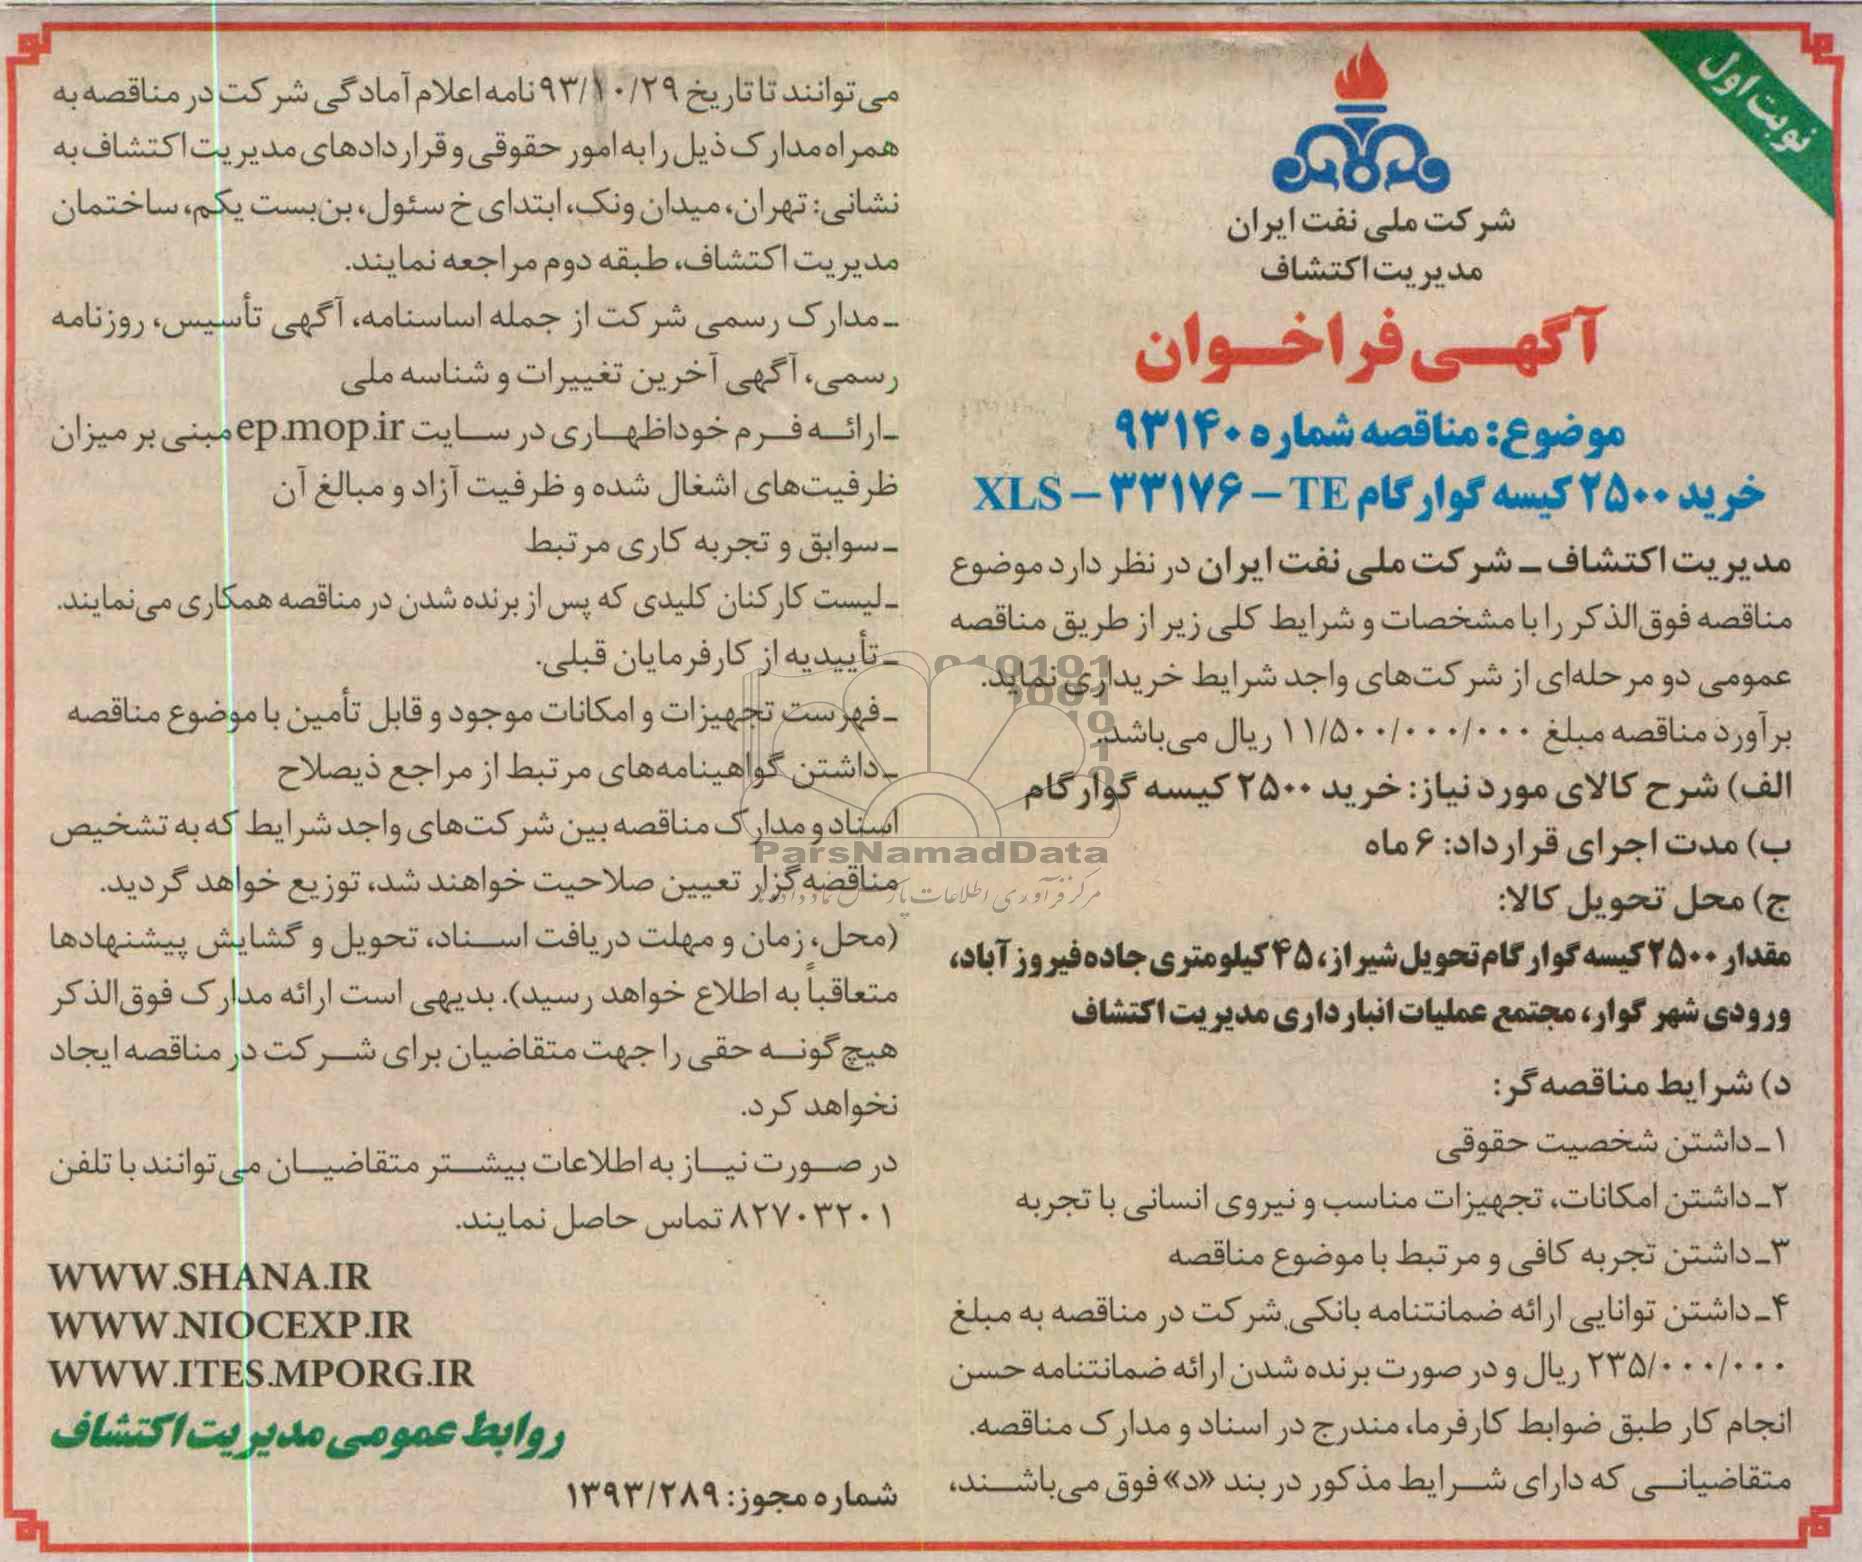 نوبت اول
شرکت ملی نفت ایران
مدیریت اکتشاف
آگهی فراخوان
موضوع: مناقصه شماره ۹۳۱۴۰
خرید ۲۵۰۰ کیسه گوار گام XLS – ۳۳۱۷۶ – TE
مدیریت اکتشاف ـ شرکت ملی نفت ایران در نظر دارد موضوع
مناقصه فوق‌الذکر را با مشخصات و شرایط کلی زیر از طریق مناقصه
عمومی دو مرحله‌ای از شرکت‌های واجد شرایط خریداری نماید.
برآورد مناقصه مبلغ ۱۱/۵۰۰/۰۰۰/۰۰۰ ریال می‌باشد.
الف) شرح کالای مورد نیاز: خرید ۲۵۰۰ کیسه گوار گام
ب) مدت اجرای قرارداد: ۶ ماه
ج) محل تحویل کالا:
مقدار ۲۵۰۰ کیسه گوار گام تحویل شیراز، ۴۵ کیلومتری جاده فیروزآباد،
ورودی شهر گوار، مجتمع عملیات انبارداری مدیریت اکتشاف
د) شرایط مناقصه‌گر:
۱ـ داشتن شخصیت حقوقی
۲ـ داشتن امکانات، تجهیزات مناسب و نیروی انسانی با تجربه
۳ـ داشتن تجربه کافی و مرتبط با موضوع مناقصه
۴ـ داشتن توانایی ارائه ضمانتنامه بانکی شرکت در مناقصه به مبلغ
۲۳۵/۰۰۰/۰۰۰ ریال و در صورت برنده شدن ارائه ضمانتنامه حسن
انجام کار طبق ضوابط کارفرما، مندرج در اسناد و مدارک مناقصه.
متقاضیانی که دارای شرایط مذکور در بند «د» فوق می‌باشند،
می‌توانند تا تاریخ ۹۳/۱۰/۲۹ نامه اعلام آمادگی شرکت در مناقصه به
همراه مدارک ذیل را به امور حقوقی و قراردادهای مدیریت اکتشاف به
نشانی: تهران، میدان ونک، ابتدای خ سئول، بن‌بست یکم، ساختمان
مدیریت اکتشاف، طبقه دوم مراجعه نمایند.
ـ مدارک رسمی شرکت از جمله اساسنامه، آگهی تأسیس، روزنامه
رسمی، آگهی آخرین تغییرات و شناسه ملی
ـ ارائه فرم خوداظهاری در سایت ep.mop.ir مبنی بر میزان
ظرفیت‌های اشغال شده و ظرفیت آزاد و مبالغ آن
ـ سوابق و تجربه کاری مرتبط
ـ لیست کارکنان کلیدی که پس از برنده شدن در مناقصه همکاری می‌نمایند.
ـ تأییدیه از کارفرمایان قبلی.
ـ فهرست تجهیزات و امکانات موجود و قابل تأمین با موضوع مناقصه
ـ داشتن گواهینامه‌های مرتبط از مراجع ذیصلاح
اسناد و مدارک مناقصه بین شرکت‌های واجد شرایط که به تشخیص
مناقصه‌گزار تعیین صلاحیت خواهند شد، توزیع خواهد گردید.
(محل، زمان و مهلت دریافت اسناد، تحویل و گشایش پیشنهادها
متعاقباً به اطلاع خواهد رسید). بدیهی است ارائه مدارک فوق‌الذکر
هیچ‌گونه حقی را جهت متقاضیان برای شرکت در مناقصه ایجاد
نخواهد کرد.
در صورت نیاز به اطلاعات بیشتر متقاضیان می‌توانند با تلفن
۸۲۷۰۳۲۰۱ تماس حاصل نمایند.
WWW.SHANA.IR
WWW.NIOCEXP.IR
WWW.ITES.MPORG.IR
روابط عمومی مدیریت اکتشاف
شماره مجوز: ۱۳۹۳/۲۸۹
ParsNamadData